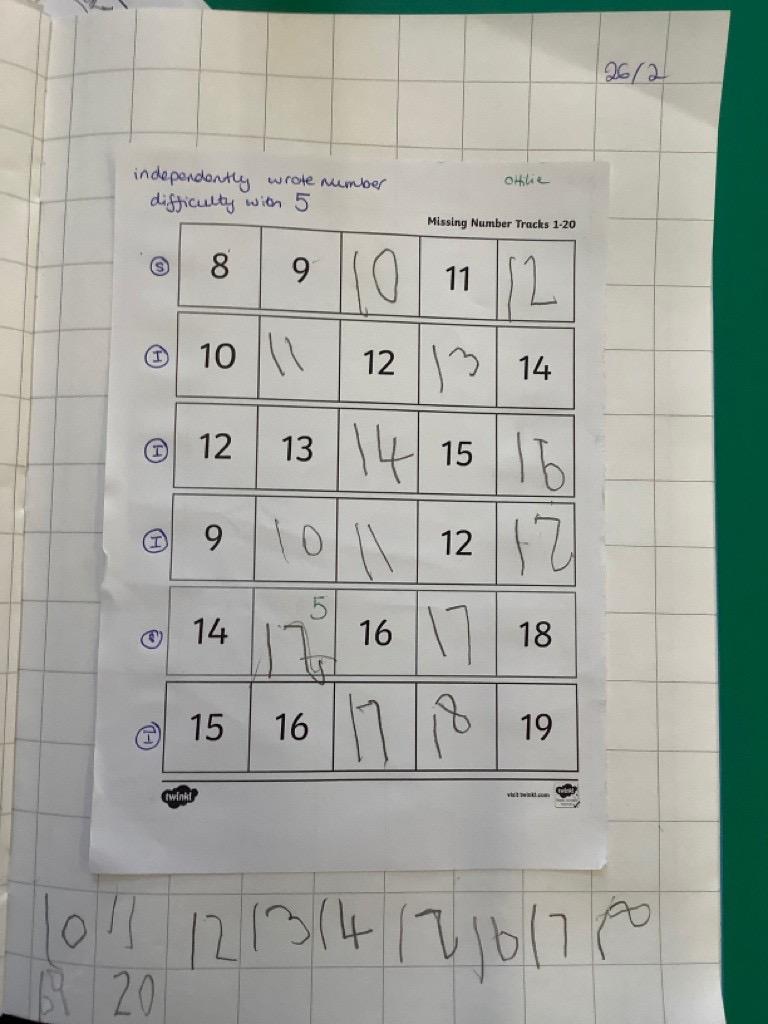 26/2
independently wrote number
difficulty with 5
Ottilie
Missing Number Tracks 1-20
S 8 9 10 11 12
I 10 11 12 13 14
I 12 13 14 15 16
I 9 10 11 12 12
S 14 5 16 17 18
I 15 16 17 18 19
twinkl
visit twinkl.com
twinkl
10 11 12 13 14 12 16 17 18
19 20